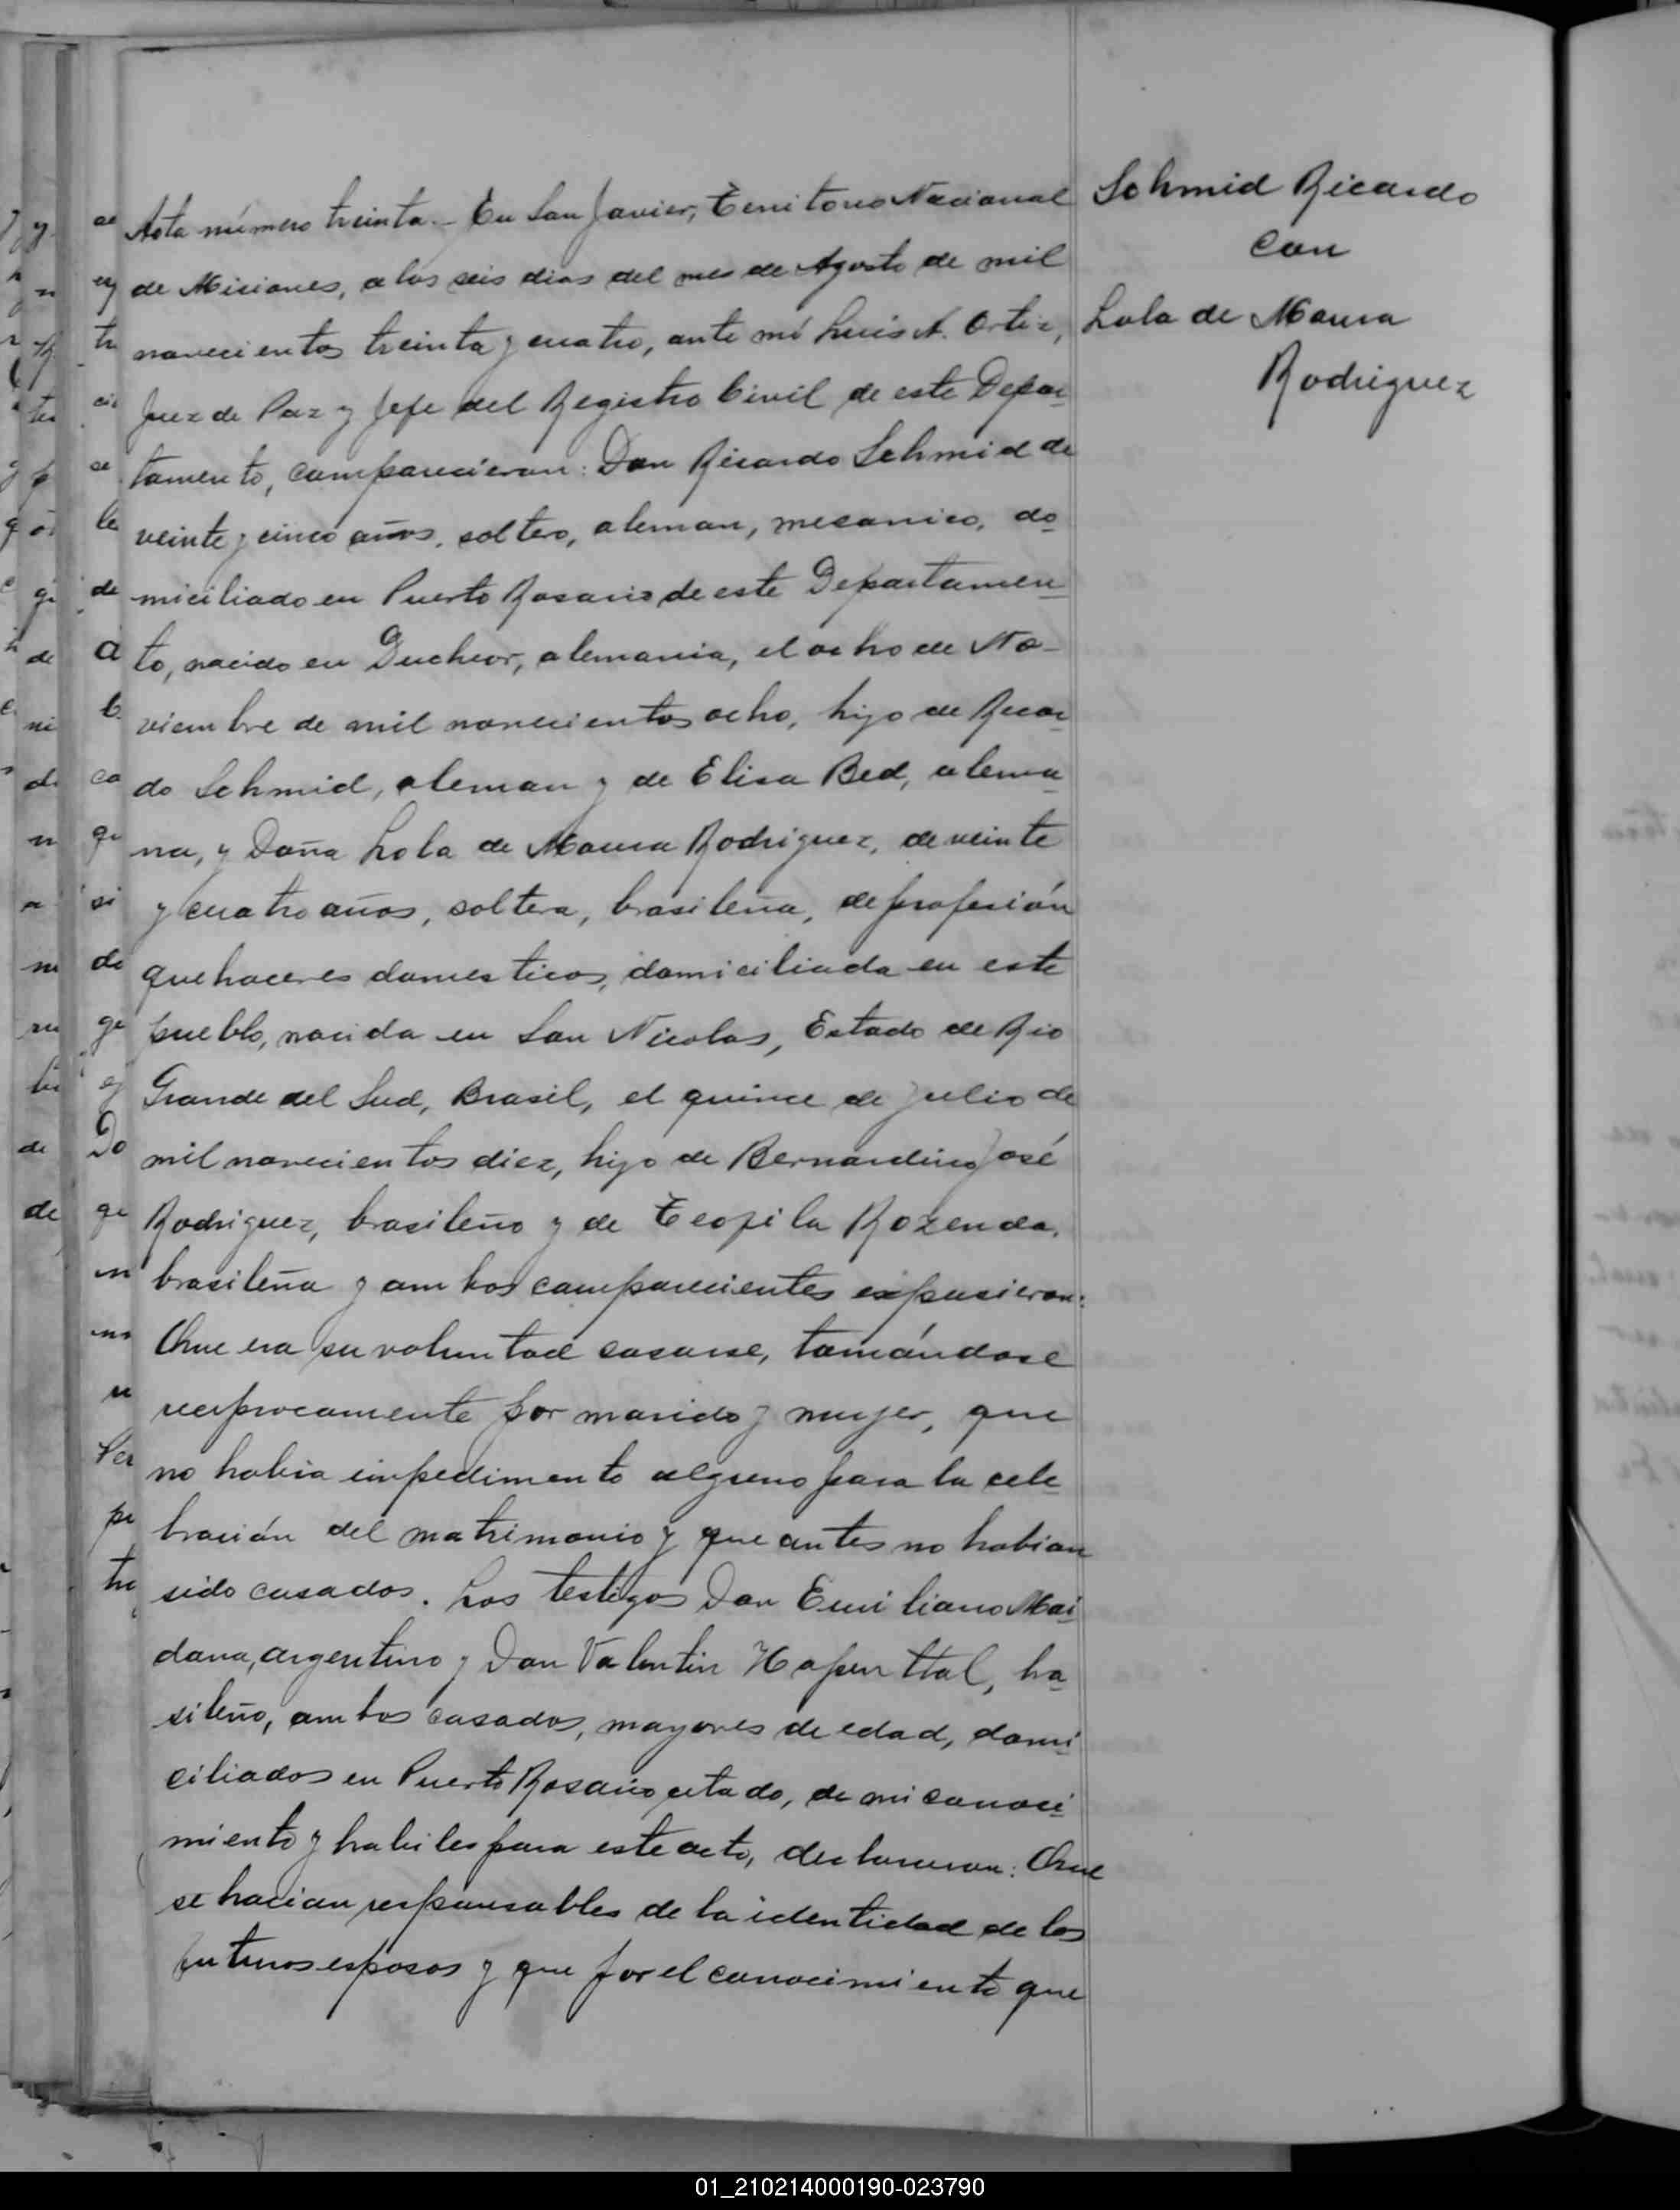 Schmid Ricardo
con
Lola de Moura
Rodriguez
Acta número treinta.- En San Javier, Territorio Nacional
de Misiones, a los seis dias del mes de Agosto de mil
novecientos treinta y cuatro, ante mí Luis A. Ortiz,
Juez de Paz y Jefe del Registro Civil de este Depar
tamento, comparecieron: Don Ricardo Schmid de
veinte y cinco años, soltero, aleman, mecanico, do
miciliado en Puerto Rosario de este Departamen
to, nacido en alemania, el ocho de No-
viembre de mil novecientos ocho, hijo de Ricar
do Schmid, aleman y de Elisa Bed, alema
na, y Doña Lola de Moura Rodriguez, de veinte
y cuatro años, soltera, brasileña, de profesión
quehaceres domesticos, domiciliada en este
pueblo, nacida en San Nicolas, Estado de Rio
Grande del Sud, Brasil, el quince de Julio de
mil novecientos diez, hijo de Bernardino José
Rodriguez, brasileño y de Teofila Rozenda,
brasileña y ambos comparecientes expusieron:
Que era su voluntad casarse, tomándose
reciprocamente por marido y mujer, que
no habia impedimento alguno para la cele
bración del matrimonio y que antes no habian
sido casados. Los testigos Don Emiliano Mai
dana, argentino y Don Valentin bra
sileño, ambos casados, mayores de edad, domi
ciliados en Puerto Rosario citado, de mi conoci
miento y habiles para este acto, declararon: Que
se hacian responsables de la identidad de los
futuros esposos y que por el conocimiento que
01_210214000190-023790